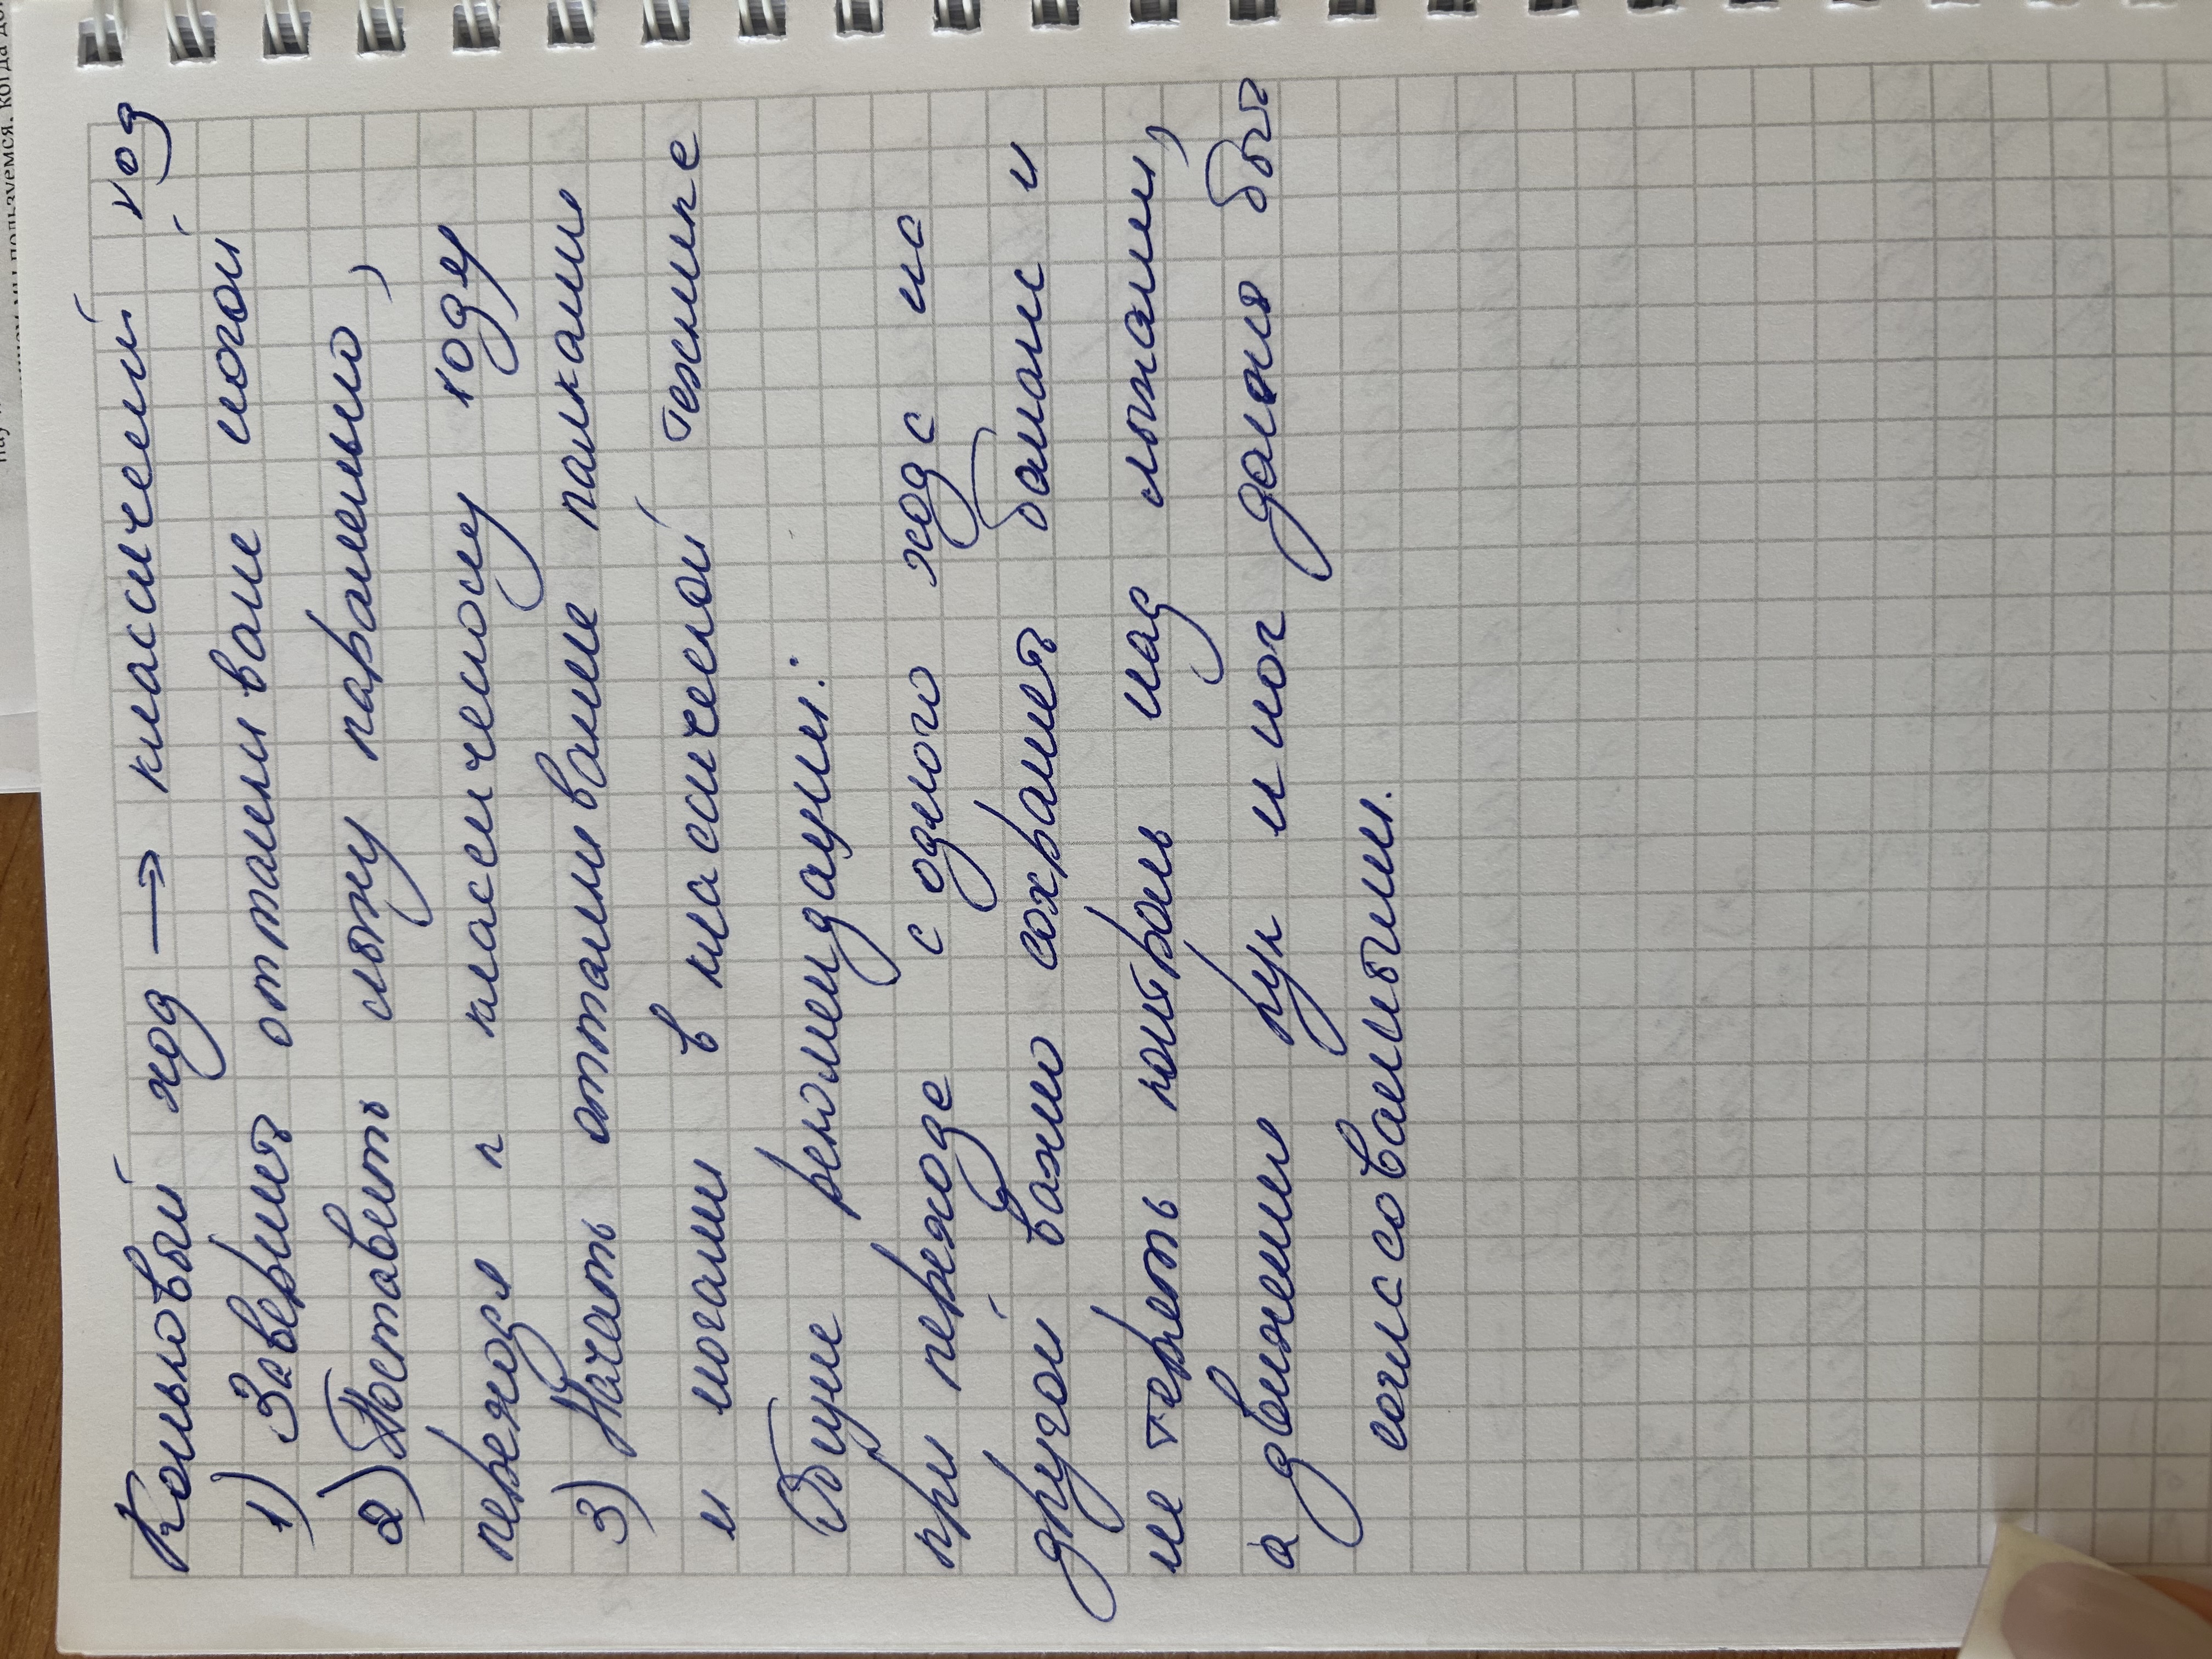 Коньковый ход → класический ход
1) Завершить отталкивание ногой
2) Поставить лыжу паралельно,
переходя к класическому ходу
3) Начать отталкивание палками
и ногами в классической технике
Общие рекомендации:
при переходе с одного хода на
другой важно сохранить баланс и
не терять контроль над лыжами,
а движения рук и ног должны быть
согласованными.